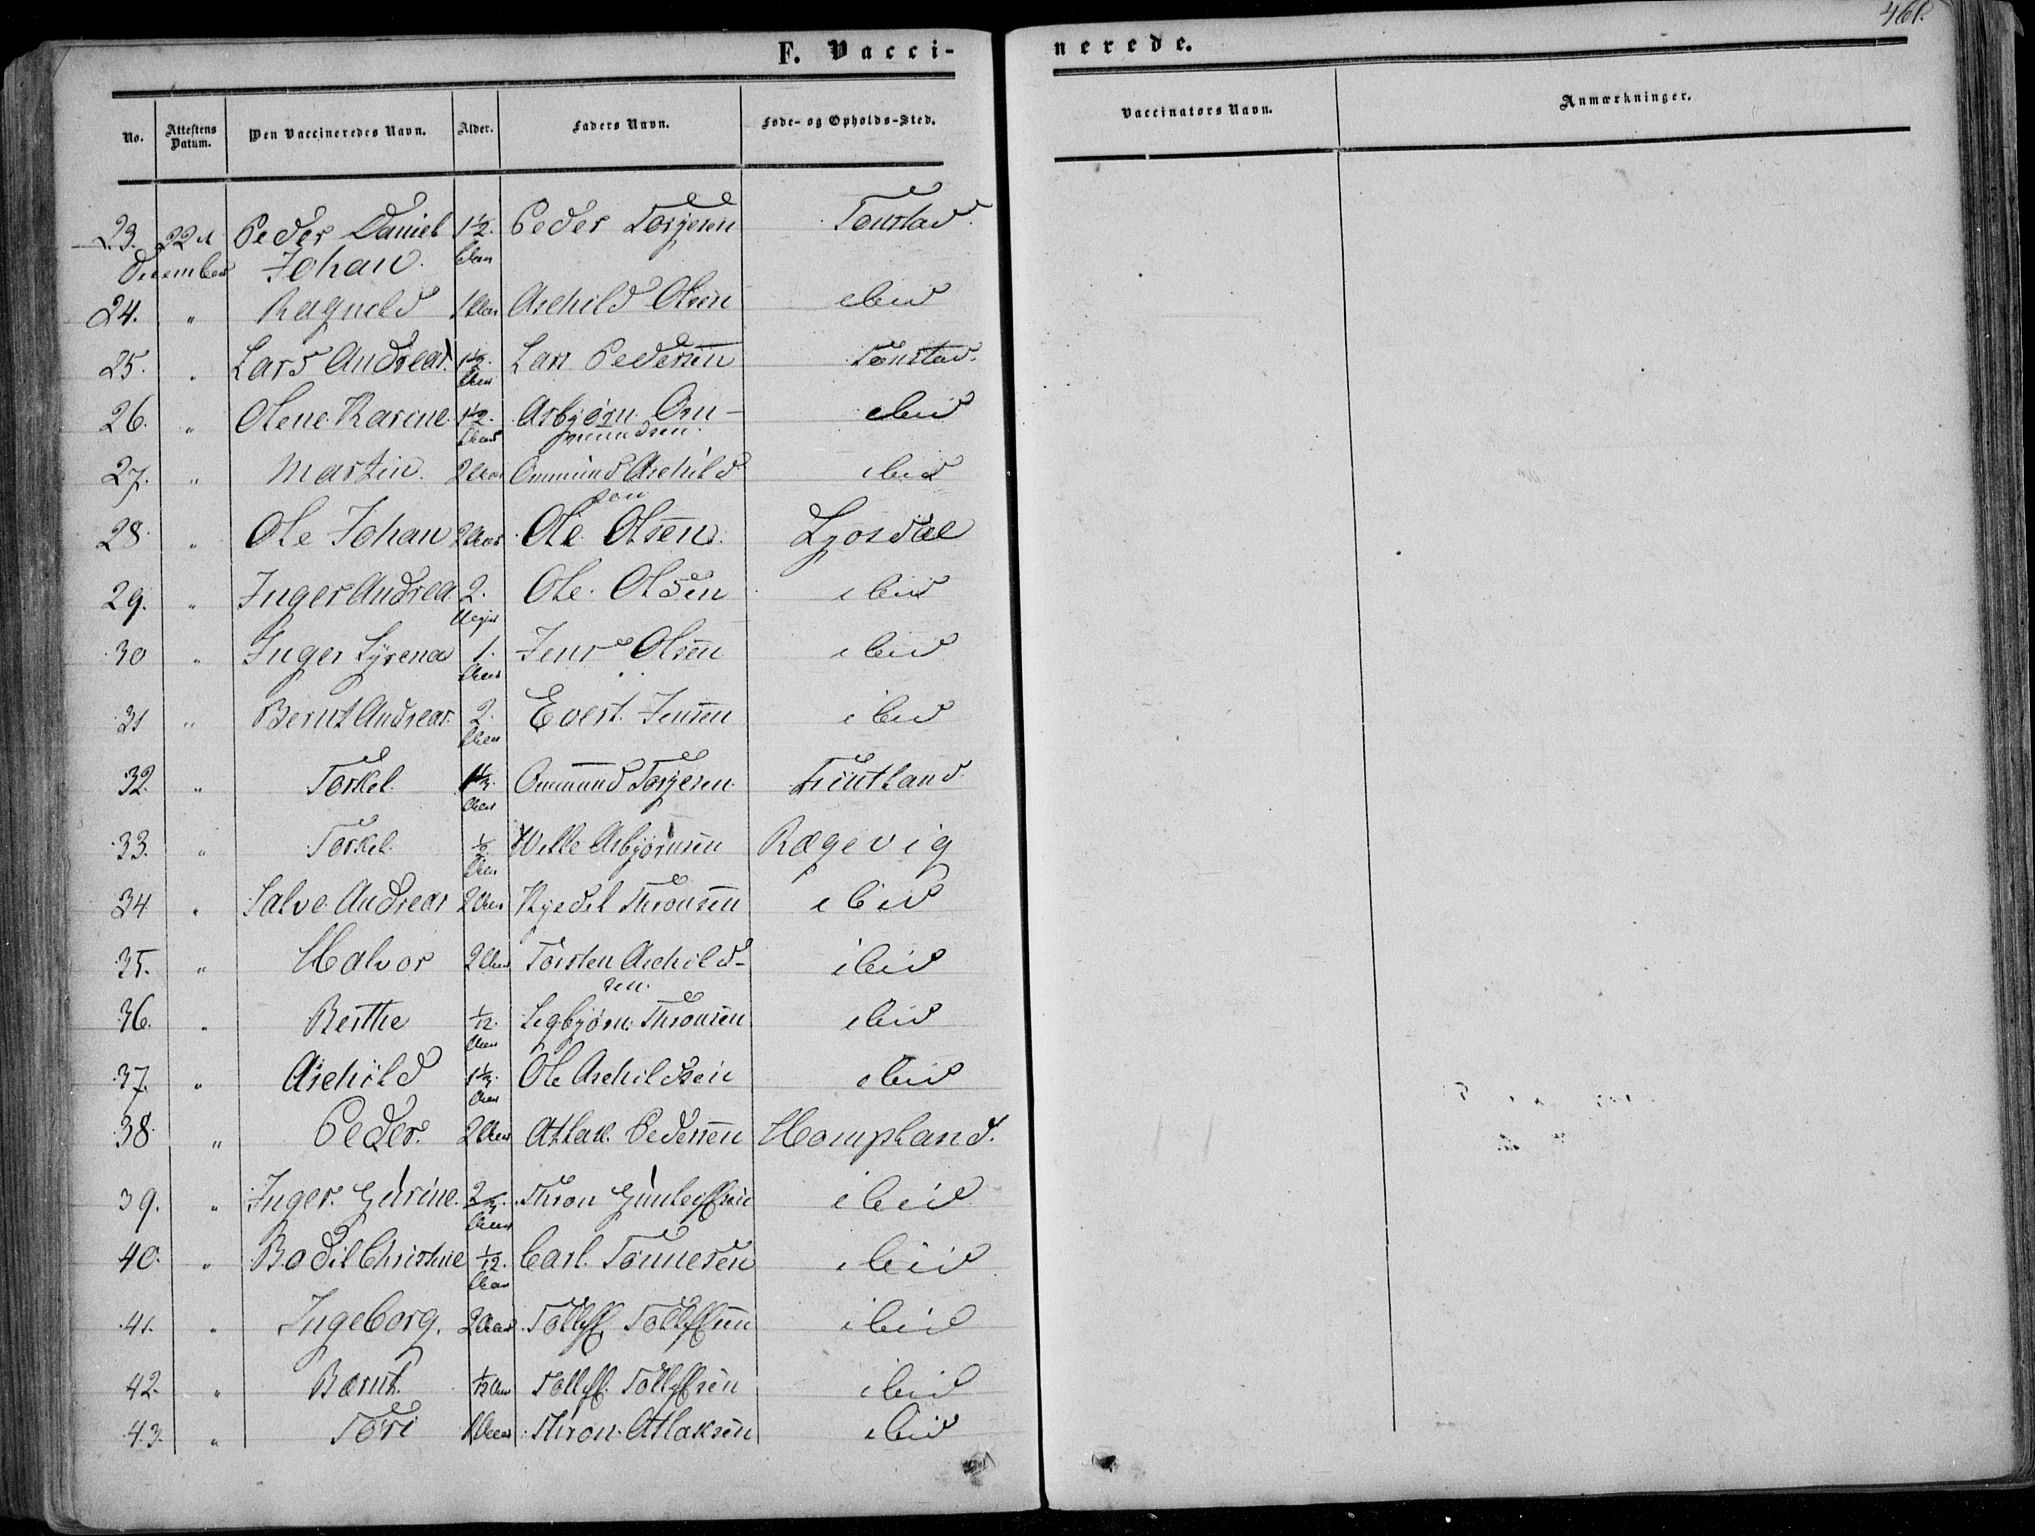 461.
F. Vacci-
nerede.
No. Attestens Datum. Den Vaccineredes Navn. Alder. Faders Navn. Føde- og Opholds-Sted. Vaccinators Navn. Anmærkninger.
23. 22d Peder Daniel 1½ Peder Torjesen Tonstad.
December Johan. Aar
24. " Ragnild 1 Aar Aschild Olsen ibid
25. " Lars Andreas. 1½ Aar Lars Pedersen Tonstad.
26. " Olene Karine. 1½ Aar Asbjørn Om-
mundsen. ibid
27. " Martin. 2 Aar Ommund Aschild
sen ibid
28. " Ole Johan 2 Aar Ole Olsen. Ljosdal
29. " Inger Andrea 2. Uger Ole Olsen ibid
30 " Inger Syrena 1. Aar Jens Olsen ibid
31 " Bernt Andreas. 2. Aar Evert Jensen ibid
32. " Torkel. Aar Ommund Torjesen. Fintland
33. " Torkel. ½ Aar Wille Asbjørnsen Rægevig
34 " Salve Andreas 2 Aar Kjedel Thronsen ibid
35. " Halvor 2 Aar Torsten Aschild-
sen. ibid
36. " Berthe 1/12. Aar Segbjørn Thronsen ibid
37. " Aschild Aar Ole Aschildsen ibid
38. " Peder. 2 Aar Atlak Pedersen Hompland.
39. " Inger Gurine. Aar Thron Gunleffsen ibid
40. " Bodil Christine 1/12. Aar Carl Tønnesen ibid
41. " Ingeborg. 2 Aar Tolleff Tolleffsen ibid
42. " Bærnt. 1/12 Aar Tolleff Tolleffsen ibid
43. " Tori 1 Aar Thron Atlaksen ibid